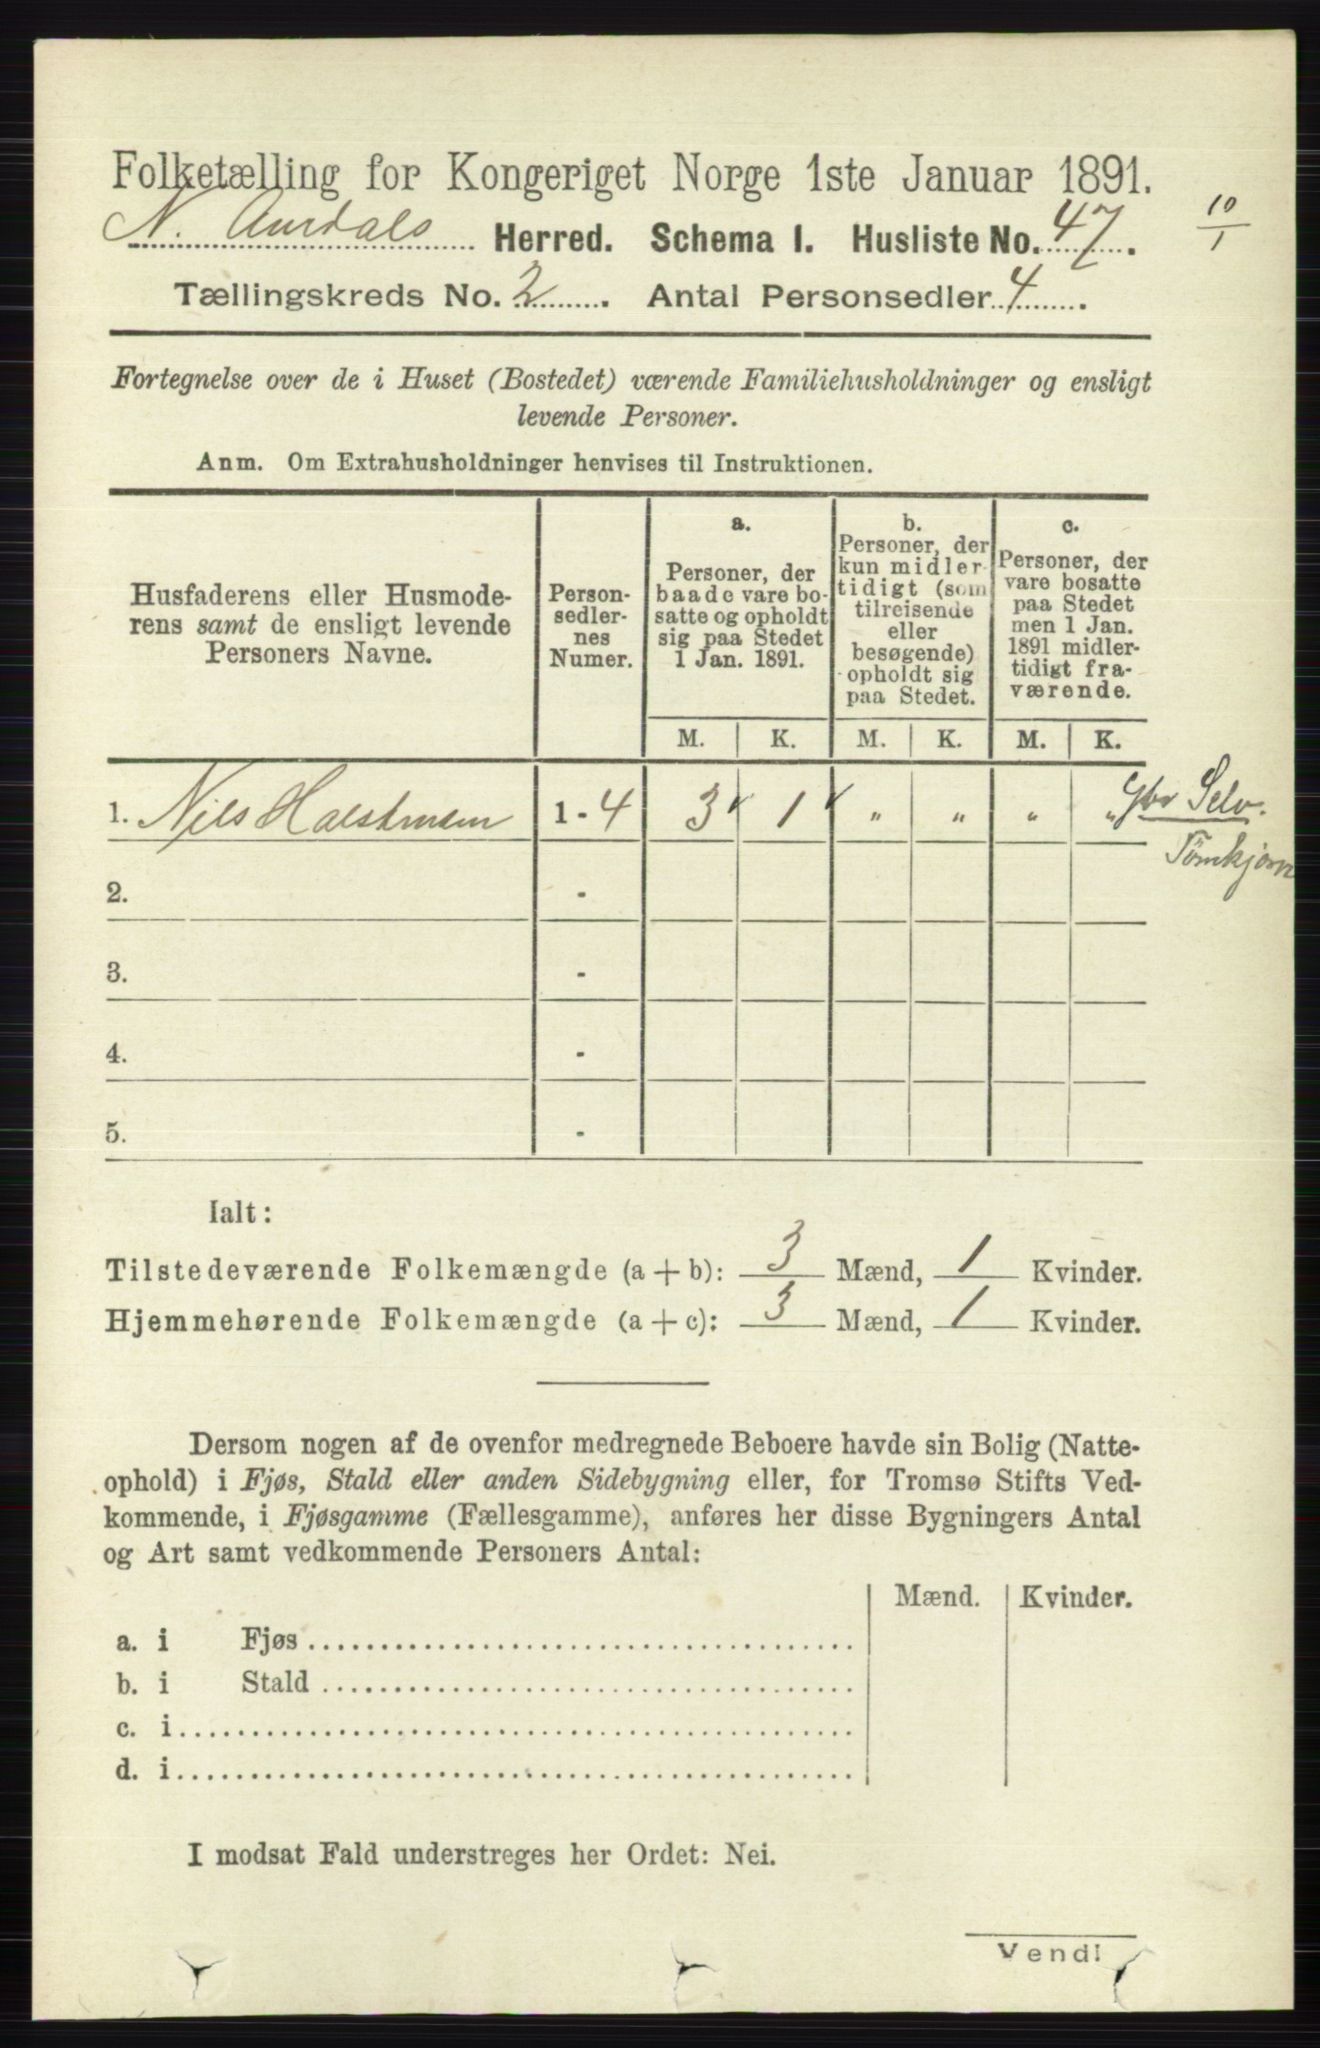 Folketælling for Kongeriget Norge 1ste Januar 1891.
N. Aurdals Herred. Schema I. Husliste No. 47.
10/1
Tællingskreds No. 2. Antal Personsedler 4.
Fortegnelse over de i Huset (Bostedet) værende Familiehusholdninger og ensligt
levende Personer.
Anm. Om Extrahusholdninger henvises til Instruktionen.
Husfaderens eller Husmode-
rens samt de ensligt levende
Personers Navne.
Person-
sedler-
nes
Numer.
a.
Personer, der
baade vare bo-
satte og opholdt
sig paa Stedet
1 Jan. 1891.
b.
Personer, der
kun midler-
tidigt (som
tilreisende
eller
besøgende)
opholdt sig
paa Stedet.
c.
Personer, der
vare bosatte
paa Stedet
men 1 Jan.
1891 midler-
tidigt fra-
værende.
M. K. M. K. M. K.
1. Nils 1 - 4 3 1 " " " " Selv.
2. -
3. -
4. -
5. -
Ialt:
Tilstedeværende Folkemængde (a + b): 3 Mænd, 1 Kvinder.
Hjemmehørende Folkemængde (a + c): 3 Mænd, 1 Kvinder.
Dersom nogen af de ovenfor medregnede Beboere havde sin Bolig (Natte-
ophold) i Fjøs, Stald eller anden Sidebygning eller, for Tromsø Stifts Ved-
kommende, i Fjøsgamme (Fællesgamme), anføres her disse Bygningers Antal
og Art samt vedkommende Personers Antal:
Mænd. Kvinder.
a. i Fjøs
b. i Stald
c. i
d. i
I modsat Fald understreges her Ordet: Nei.
Vend!